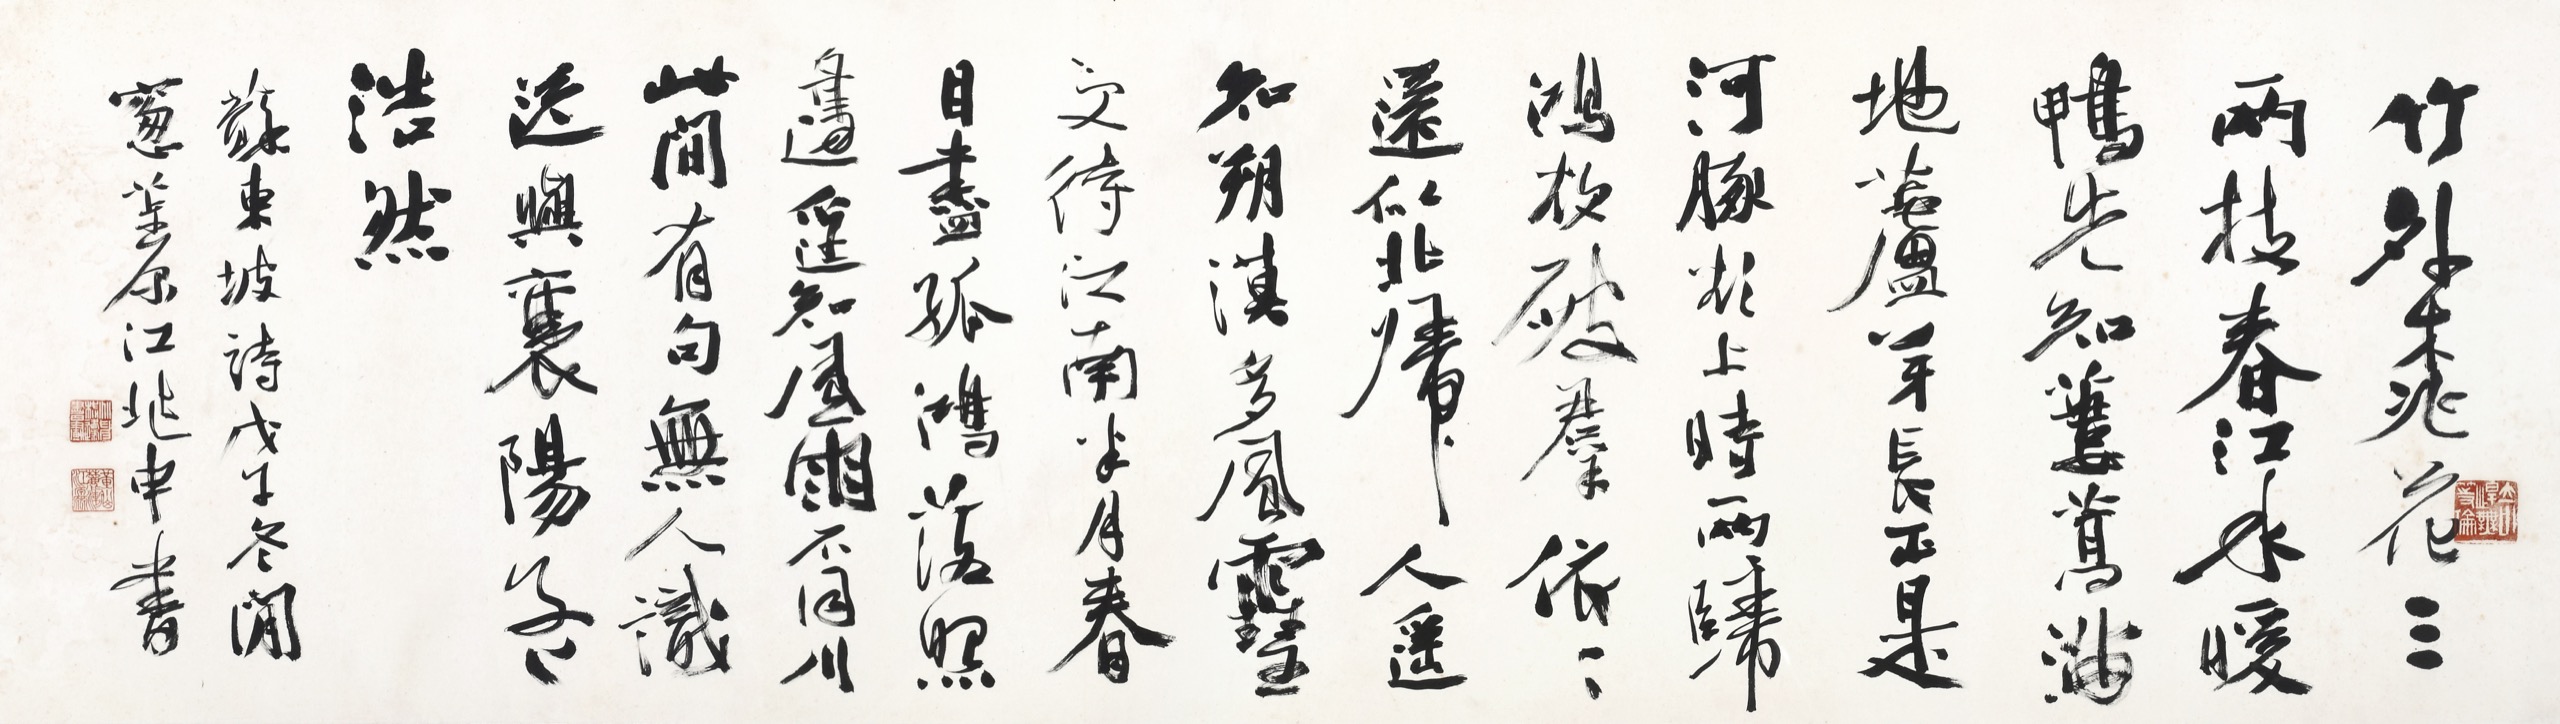 竹外桃花三
兩枝春江水暖
鴨先知蔞蒿滿
地蘆芽長正是
河豚欲上時兩歸
鴻欲破羣依〻
還似北歸人遙
知朔漠多風雪
更待江南半月春
目盡孤鴻落照
邊遙知風雨不同川
此間有句無人識
送與襄陽孟
浩然
蘇東坡詩戊午冬閒
窗茮原江兆申書